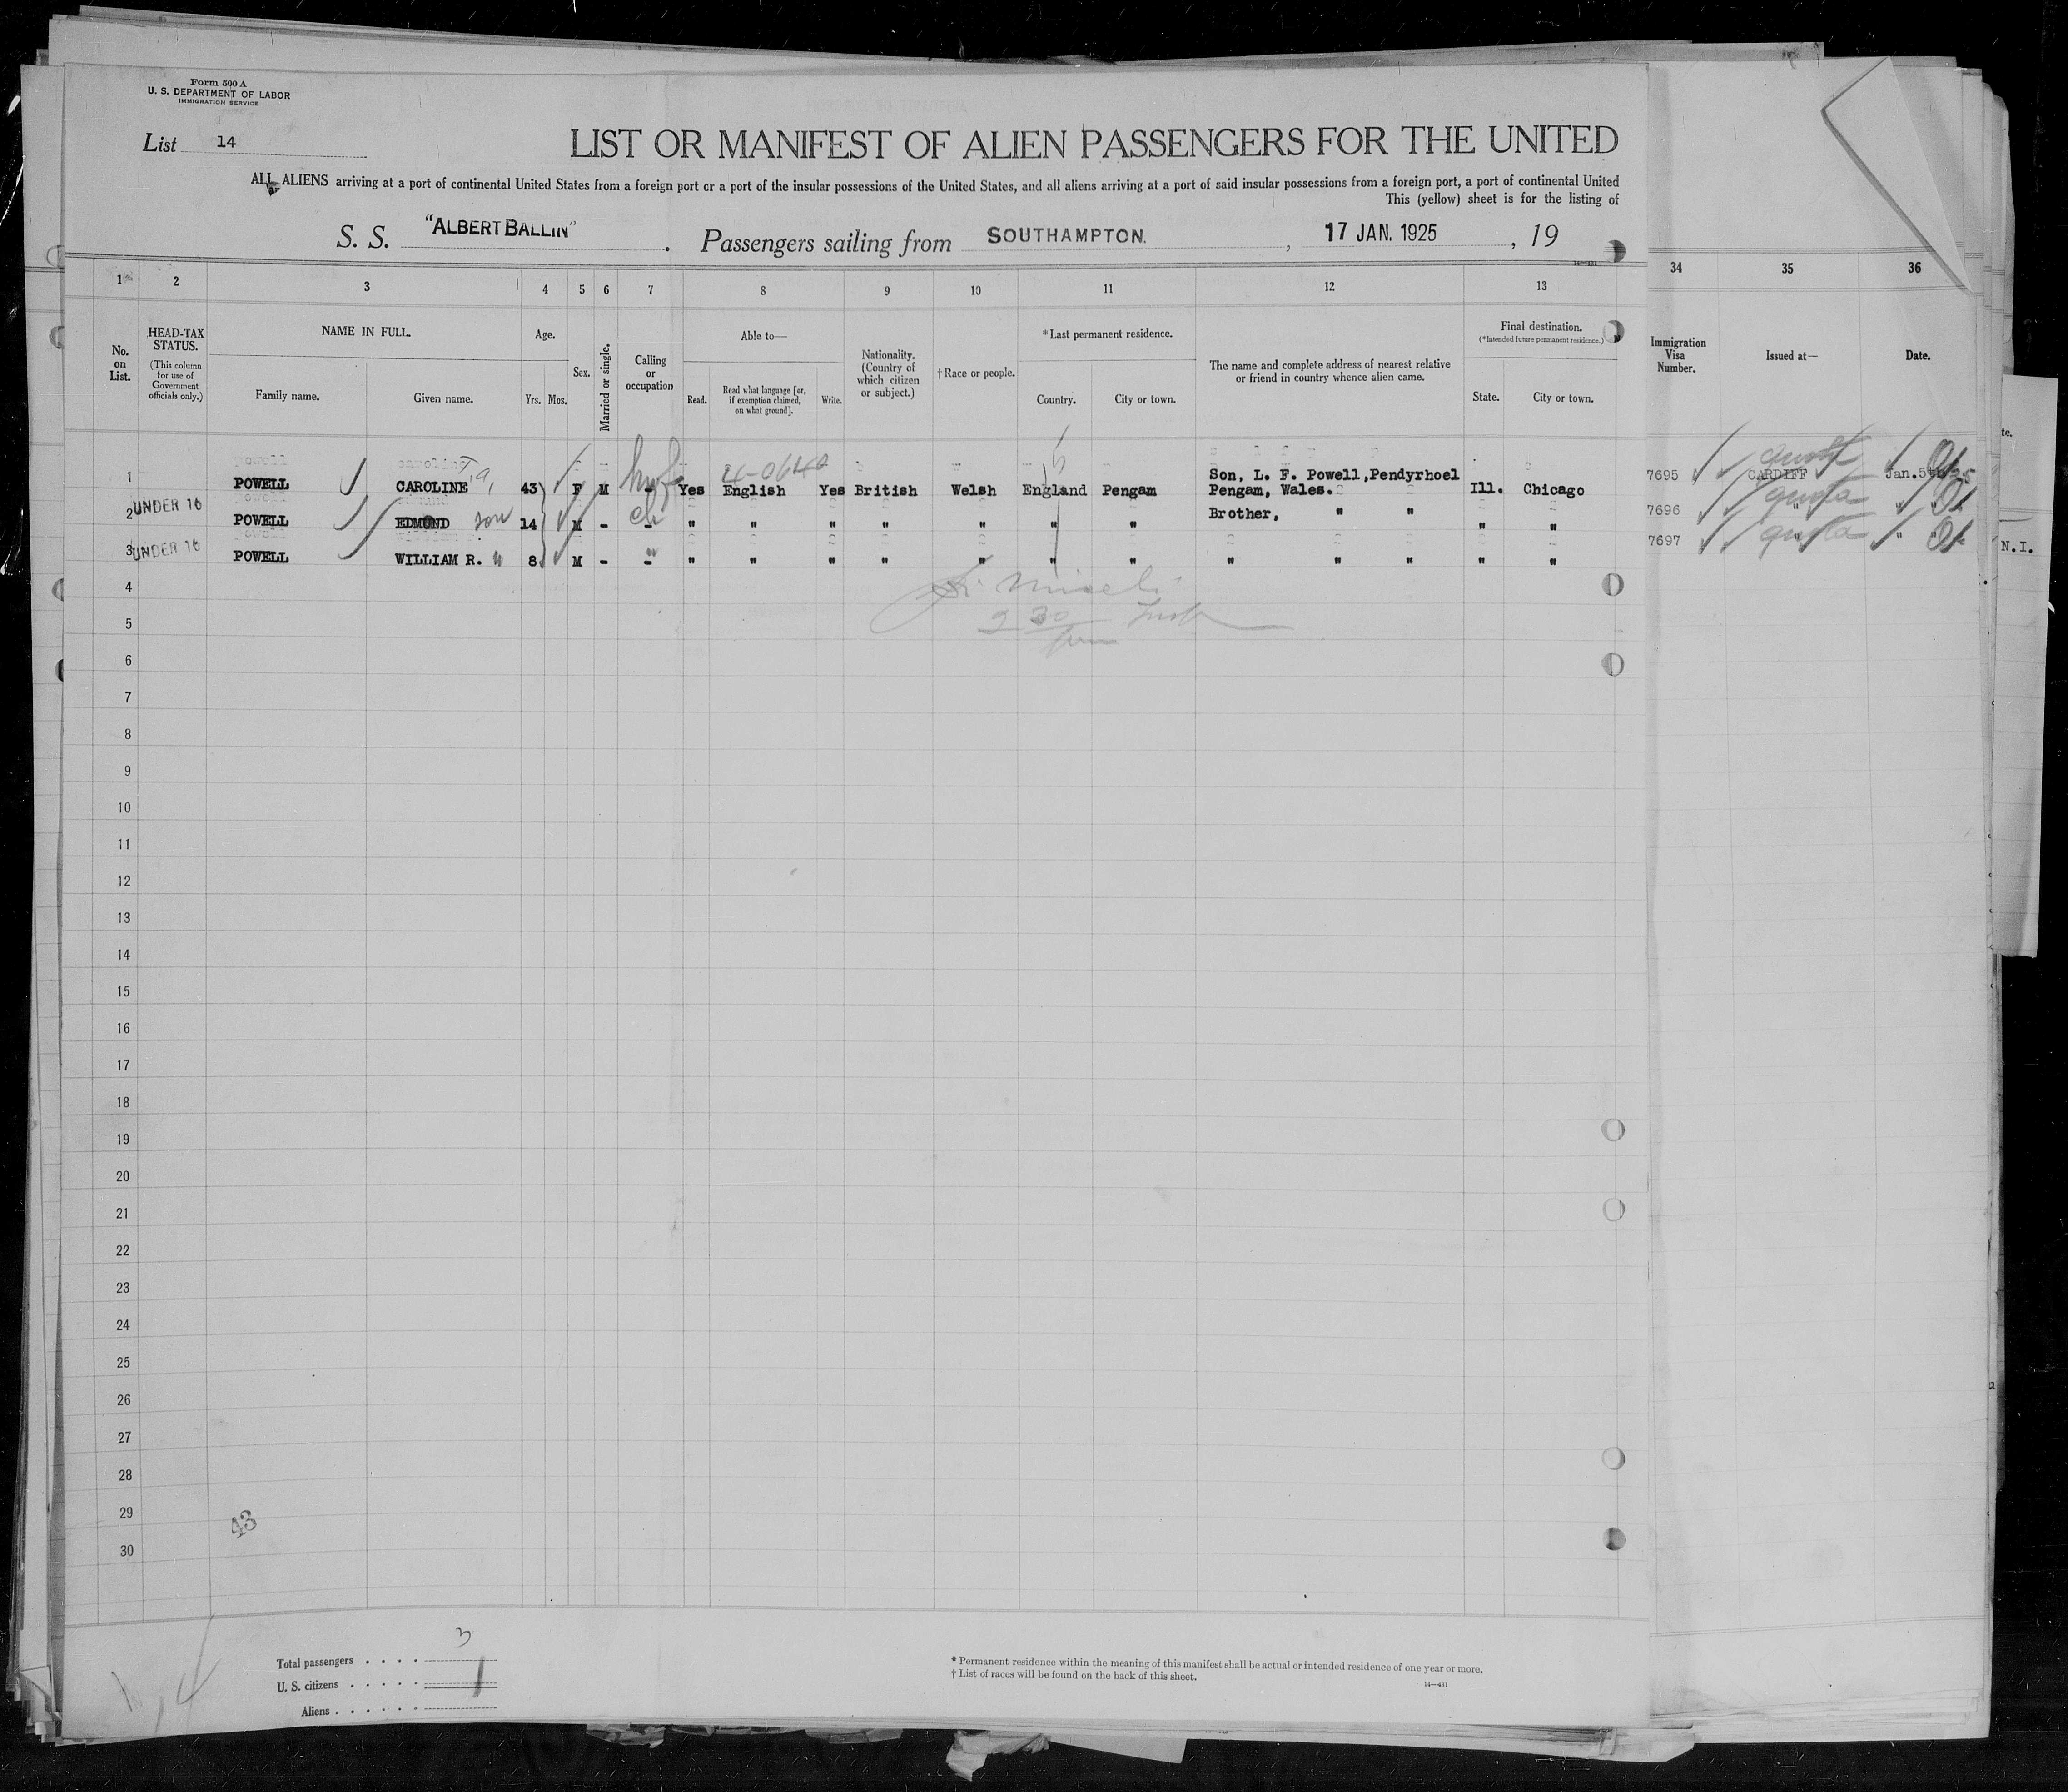 Form 500 A
U. S. DEPARTMENT OF LABOR
IMMIGRATION SERVICE
List 14
LIST OR MANIFEST OF ALIEN PASSENGERS FOR THE UNITED
ALL ALIENS arriving at a port of continental United States from a foreign port or a port of the insular possessions of the United States, and all aliens arriving at a port of said insular possessions from a foreign port, a port of continental United
This (yellow) sheet is for the listing of
S. S. "ALBERT BALLIN" . Passengers sailing from SOUTHAMPTON. , 17 JAN. 1925 , 19
1 2 3 4 5 6 7 8 9 10 11 12 13 34 35 36
No. on List.
HEAD-TAX STATUS.
(This column for use of Government officials only.)
NAME IN FULL.
Family name. Given name.
Age.
Yrs. Mos.
Sex.
Married or single.
Calling or occupation
Able to—
Read. Read what language [or, if exemption claimed, on what ground]. Write.
Nationality. (Country of which citizen or subject.)
†Race or people.
*Last permanent residence.
Country. City or town.
The name and complete address of nearest relative or friend in country whence alien came.
Final destination.
(*Intended future permanent residence.)
State. City or town.
Immigration Visa Number.
Issued at—
Date.
4-0640
Son, L. F. Powell,Pendyrhoel
1 POWELL CAROLINE 43 F M - Yes English Yes British Welsh England Pengam Pengam, Wales. Ill. Chicago 7695 quota CARDIFF Jan.5th
Brother, " "
2 UNDER 16 POWELL EDMOND son 14 M - - " " " " " " " " " 7696 quota " " "
3 UNDER 16 POWELL WILLIAM R. " 8 M - - " " " " " " " " " " " " 7697 quota " " "
4
2 30
5
6
7
8
9
10
11
12
13
14
15
16
17
18
19
20
21
22
23
24
25
26
27
28
29
43
30
Total passengers . . . . 3
U. S. citizens . . . . .
Aliens . . . . . .
* Permanent residence within the meaning of this manifest shall be actual or intended residence of one year or more.
† List of races will be found on the back of this sheet.
14—431
te.
N.I.